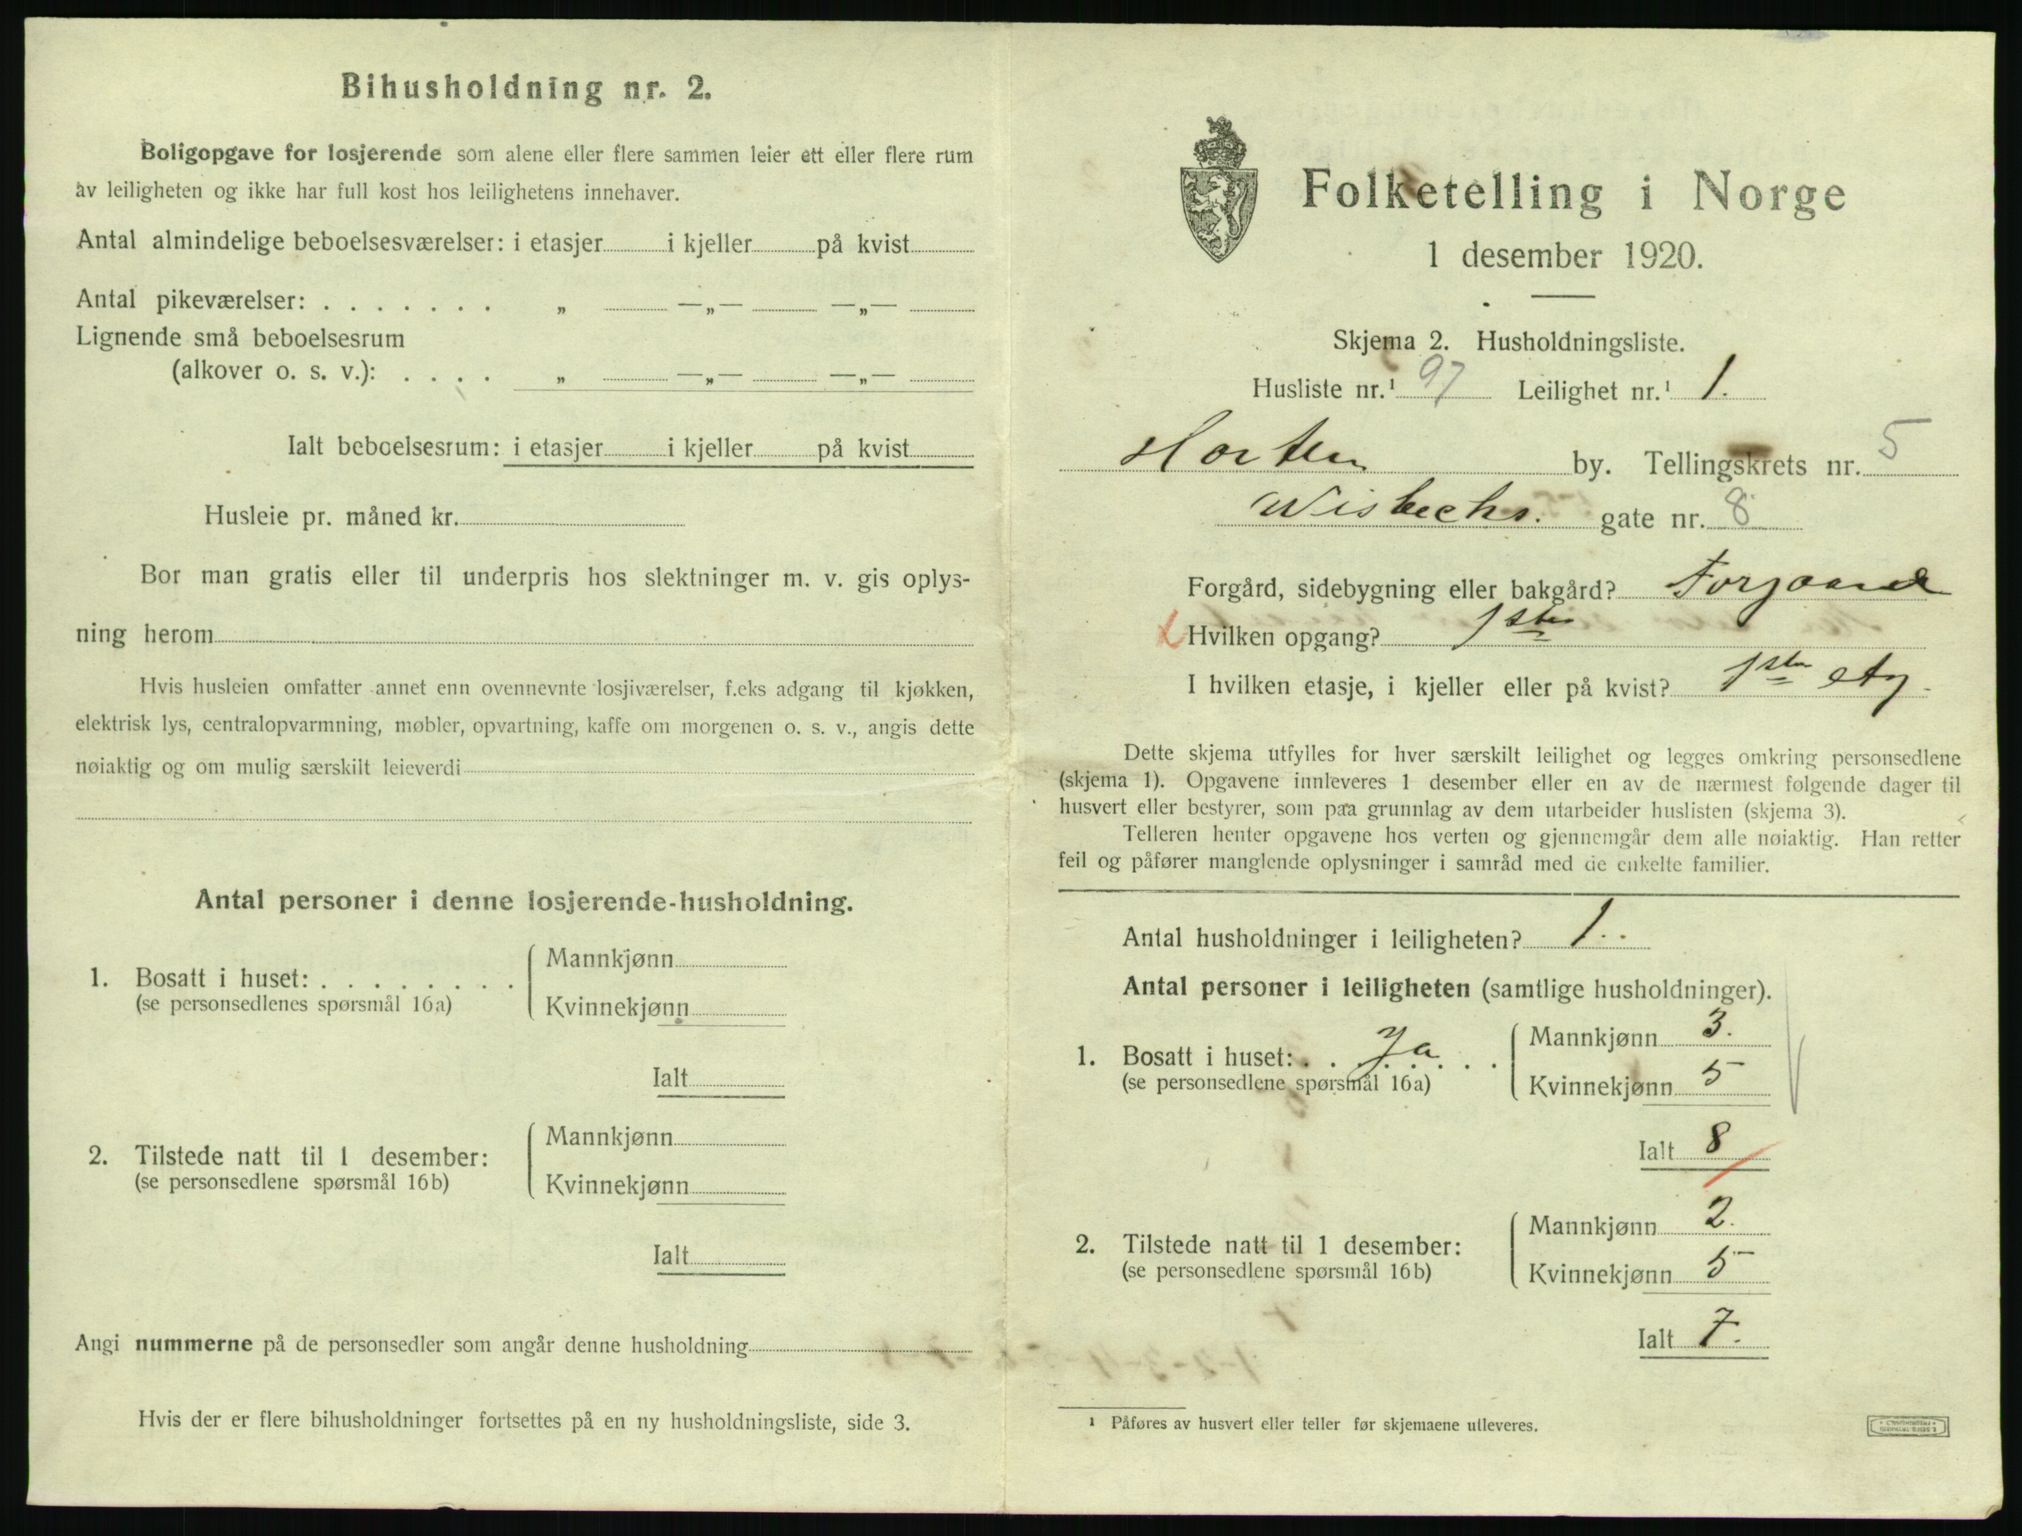 Bihusholdning nr. 2.
Boligopgave for losjerende som alene eller flere sammen leier ett eller flere rum
av leiligheten og ikke har full kost hos leilighetens innehaver.
Antal almindelige beboelsesværelser: i etasjer i kjeller på kvist
Antal pikeværelser: . . . . . . . „ —„— —„—
Lignende små beboelsesrum
(alkover o. s. v.): . . . . „ —„— —„—
Ialt beboelsesrum: i etasjer i kjeller på kvist
Husleie pr. måned kr.
Bor man gratis eller til underpris hos slektninger m. v. gis oplys-
ning herom
Hvis husleien omfatter annet enn ovennevnte losjiværelser, f.eks adgang til kjøkken,
elektrisk lys, centralopvarmning, møbler, opvartning, kaffe om morgenen o. s. v., angis dette
nøiaktig og om mulig særskilt leieverdi
Antal personer i denne losjerende-husholdning.
1. Bosatt i huset: . . . . . . . .
(se personsedlenes spørsmål 16a)
Mannkjønn
Kvinnekjønn
Ialt
2. Tilstede natt til 1 desember:
(se personsedlene spørsmål 16b)
Mannkjønn
Kvinnekjønn
Ialt
Angi nummerne på de personsedler som angår denne husholdning
Hvis der er flere bihusholdninger fortsettes på en ny husholdningsliste, side 3.
Folketelling i Norge
1 desember 1920.
Skjema 2. Husholdningsliste.
Husliste nr.¹ 97 Leilighet nr.¹ 1.
Horten by. Tellingskrets nr. 5
Wisbechs. gate nr. 8
Forgård, sidebygning eller bakgård? Forgaard
Hvilken opgang? 1ste
I hvilken etasje, i kjeller eller på kvist? 1ste etg.
Dette skjema utfylles for hver særskilt leilighet og legges omkring personsedlene
(skjema 1). Opgavene innleveres 1 desember eller en av de nærmest følgende dager til
husvert eller bestyrer, som paa grunnlag av dem utarbeider huslisten (skjema 3).
Telleren henter opgavene hos verten og gjennemgår dem alle nøiaktig. Han retter
feil og påfører manglende oplysninger i samråd med de enkelte familier.
Antal husholdninger i leiligheten? 1.
Antal personer i leiligheten (samtlige husholdninger).
1. Bosatt i huset: . . Ja . . . .
(se personsedlene spørsmål 16a)
Mannkjønn 3.
Kvinnekjønn 5
Ialt 8
2. Tilstede natt til 1 desember:
(se personsedlene spørsmål 16b)
Mannkjønn 2.
Kvinnekjønn 5
Ialt 7.
¹ Påføres av husvert eller teller før skjemaene utleveres.